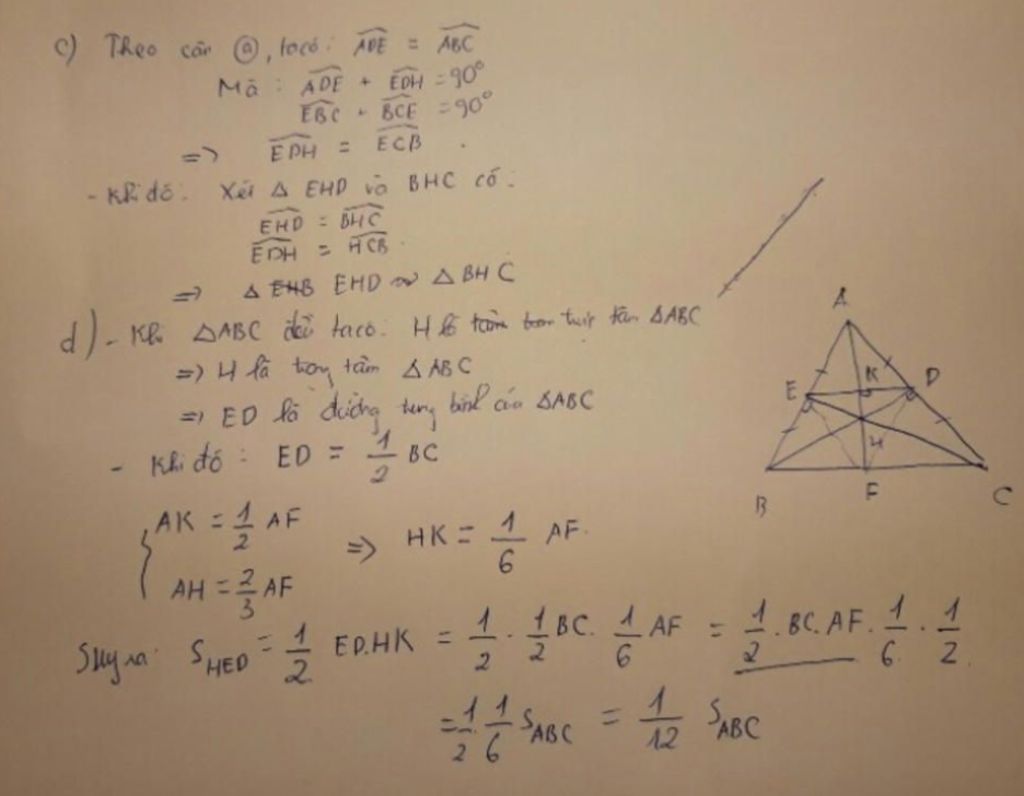 c) Theo câu ⓐ, ta có: \widehat{ADE} = \widehat{ABC}
Mà : \widehat{ADE} + \widehat{EDH} = 90°
\widehat{EBC} + \widehat{BCE} = 90°
=> \widehat{EDH} = \widehat{ECB} .
- Khi đó: Xét △ EHD và BHC có:
\widehat{EHD} = \widehat{BHC}
\widehat{EDH} = \widehat{HCB}
=> △ EHD ∽ △ BHC
d) - Khi △ABC đều ta có: H là trực tâm △ABC
=> H là trọng tâm △ABC
=> ED là đường trung bình của △ABC
- Khi đó : ED = \frac{1}{2} BC
AK = \frac{1}{2} AF
=> HK = \frac{1}{6} AF.
AH = \frac{2}{3} AF
Suy ra: S_{HED} = \frac{1}{2} ED.HK = \frac{1}{2} . \frac{1}{2} BC. \frac{1}{6} AF = \frac{1}{2} . BC. AF. \frac{1}{6} . \frac{1}{2}
= \frac{1}{2} . \frac{1}{6} S_{ABC} = \frac{1}{12} S_{ABC}
A
E
K
D
H
B
F
C